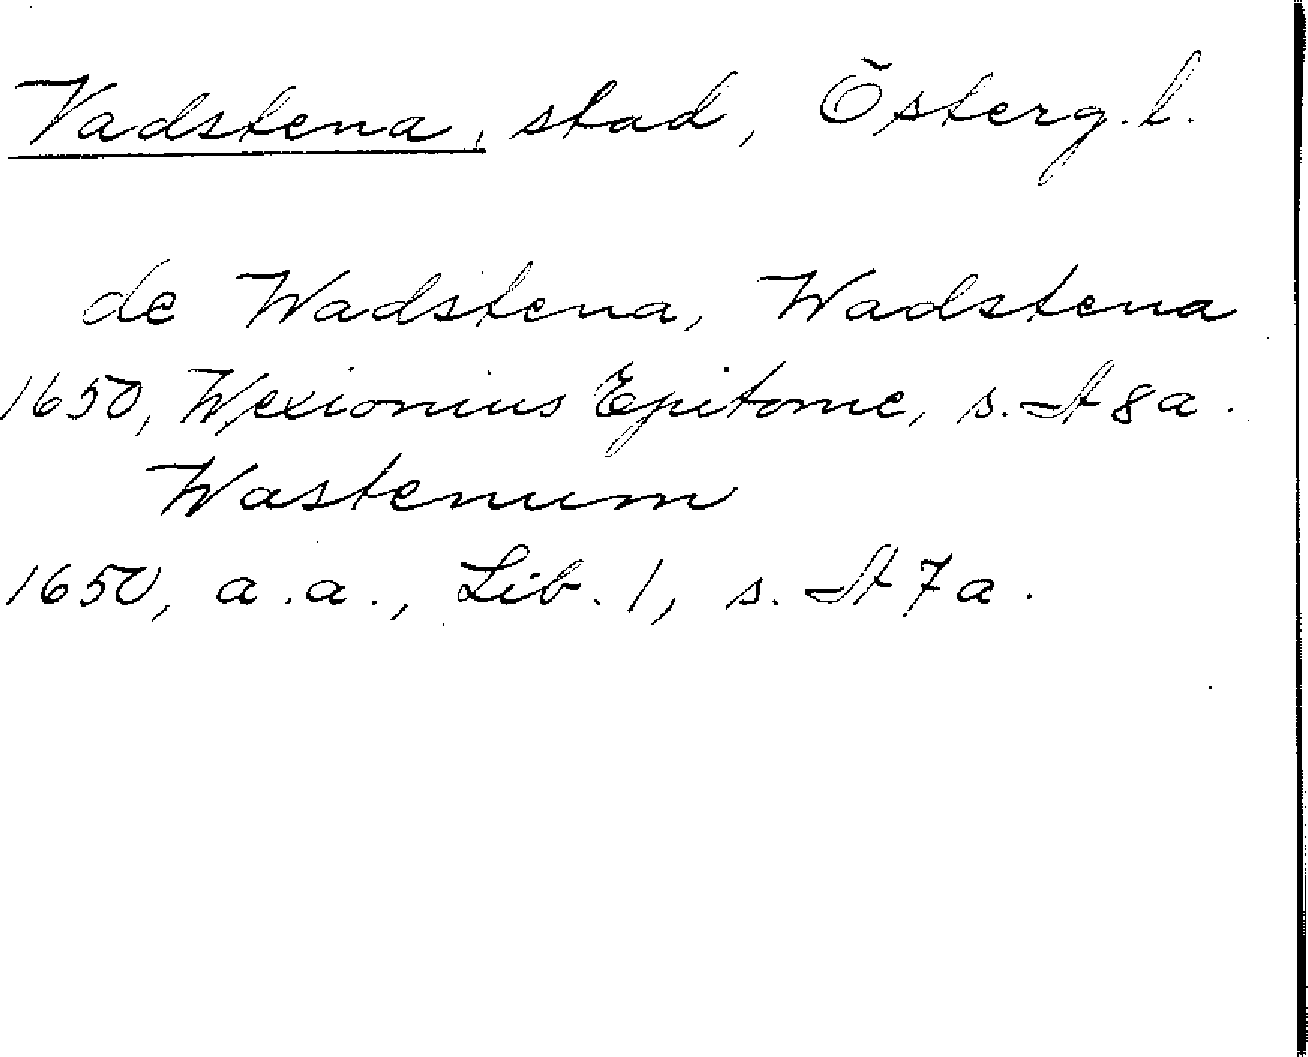 Vadstena, stad, Österg. l.
de Wadstena, Wadstena
1650, Wexionius Epitome, s. A 8 a.
Wastenum
1650, a.a., Lib. 1, s. A 7 a.